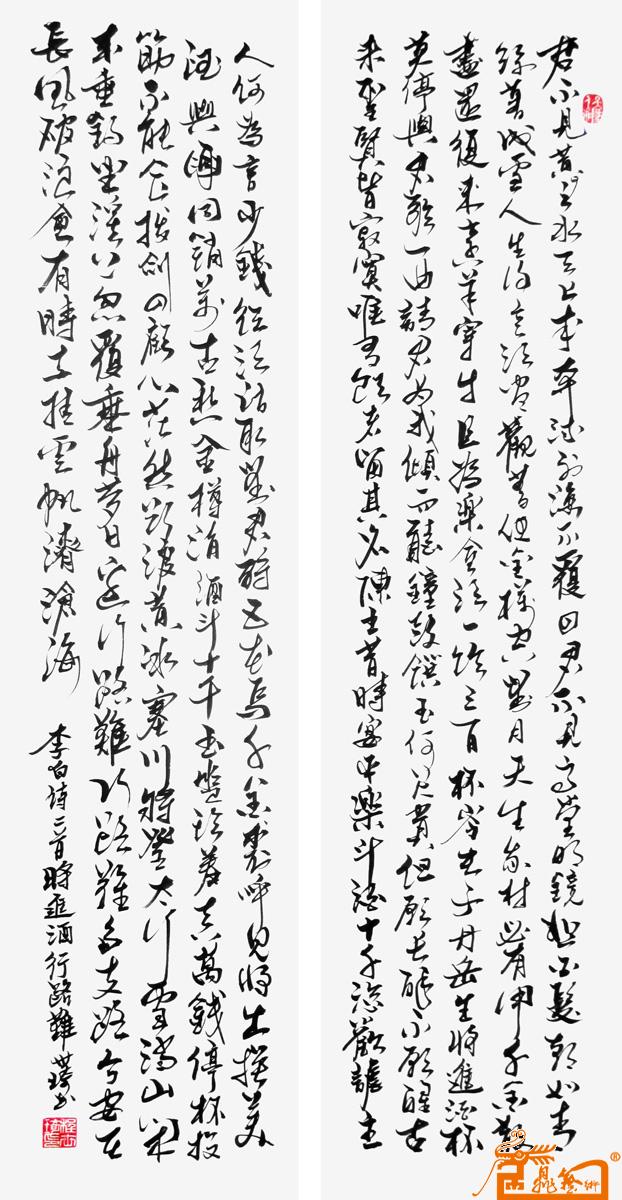 君不見黃河之水天上來奔流到海不覆回君不見高堂明鏡悲白髮朝如青
絲暮成雪人生得意須盡歡莫使金樽空對月天生我材必有用千金散
盡還復來烹羊宰牛且為樂會須一飲三百杯岑夫子丹丘生將進酒杯
莫停與君歌一曲請君為我傾耳聽鐘鼓饌玉何足貴但願長醉不願醒古
來聖賢皆寂寞唯有飲者留其名陳王昔時宴平樂斗酒十千恣歡謔主
人何為言少錢徑須沽取對君酌五花馬千金裘呼兒將出換美
酒與爾同銷萬古愁金樽清酒斗十千玉盤珍羞直萬錢停杯投
筯不能食拔劍四顧心茫然欲渡黃冰塞川將登太行雪滿山閑
來垂釣坐溪上忽覆乘舟夢日邊行路難行路難多歧路今安在
長風破浪會有時直掛雲帆濟滄海
李白詩二首將進酒行路難